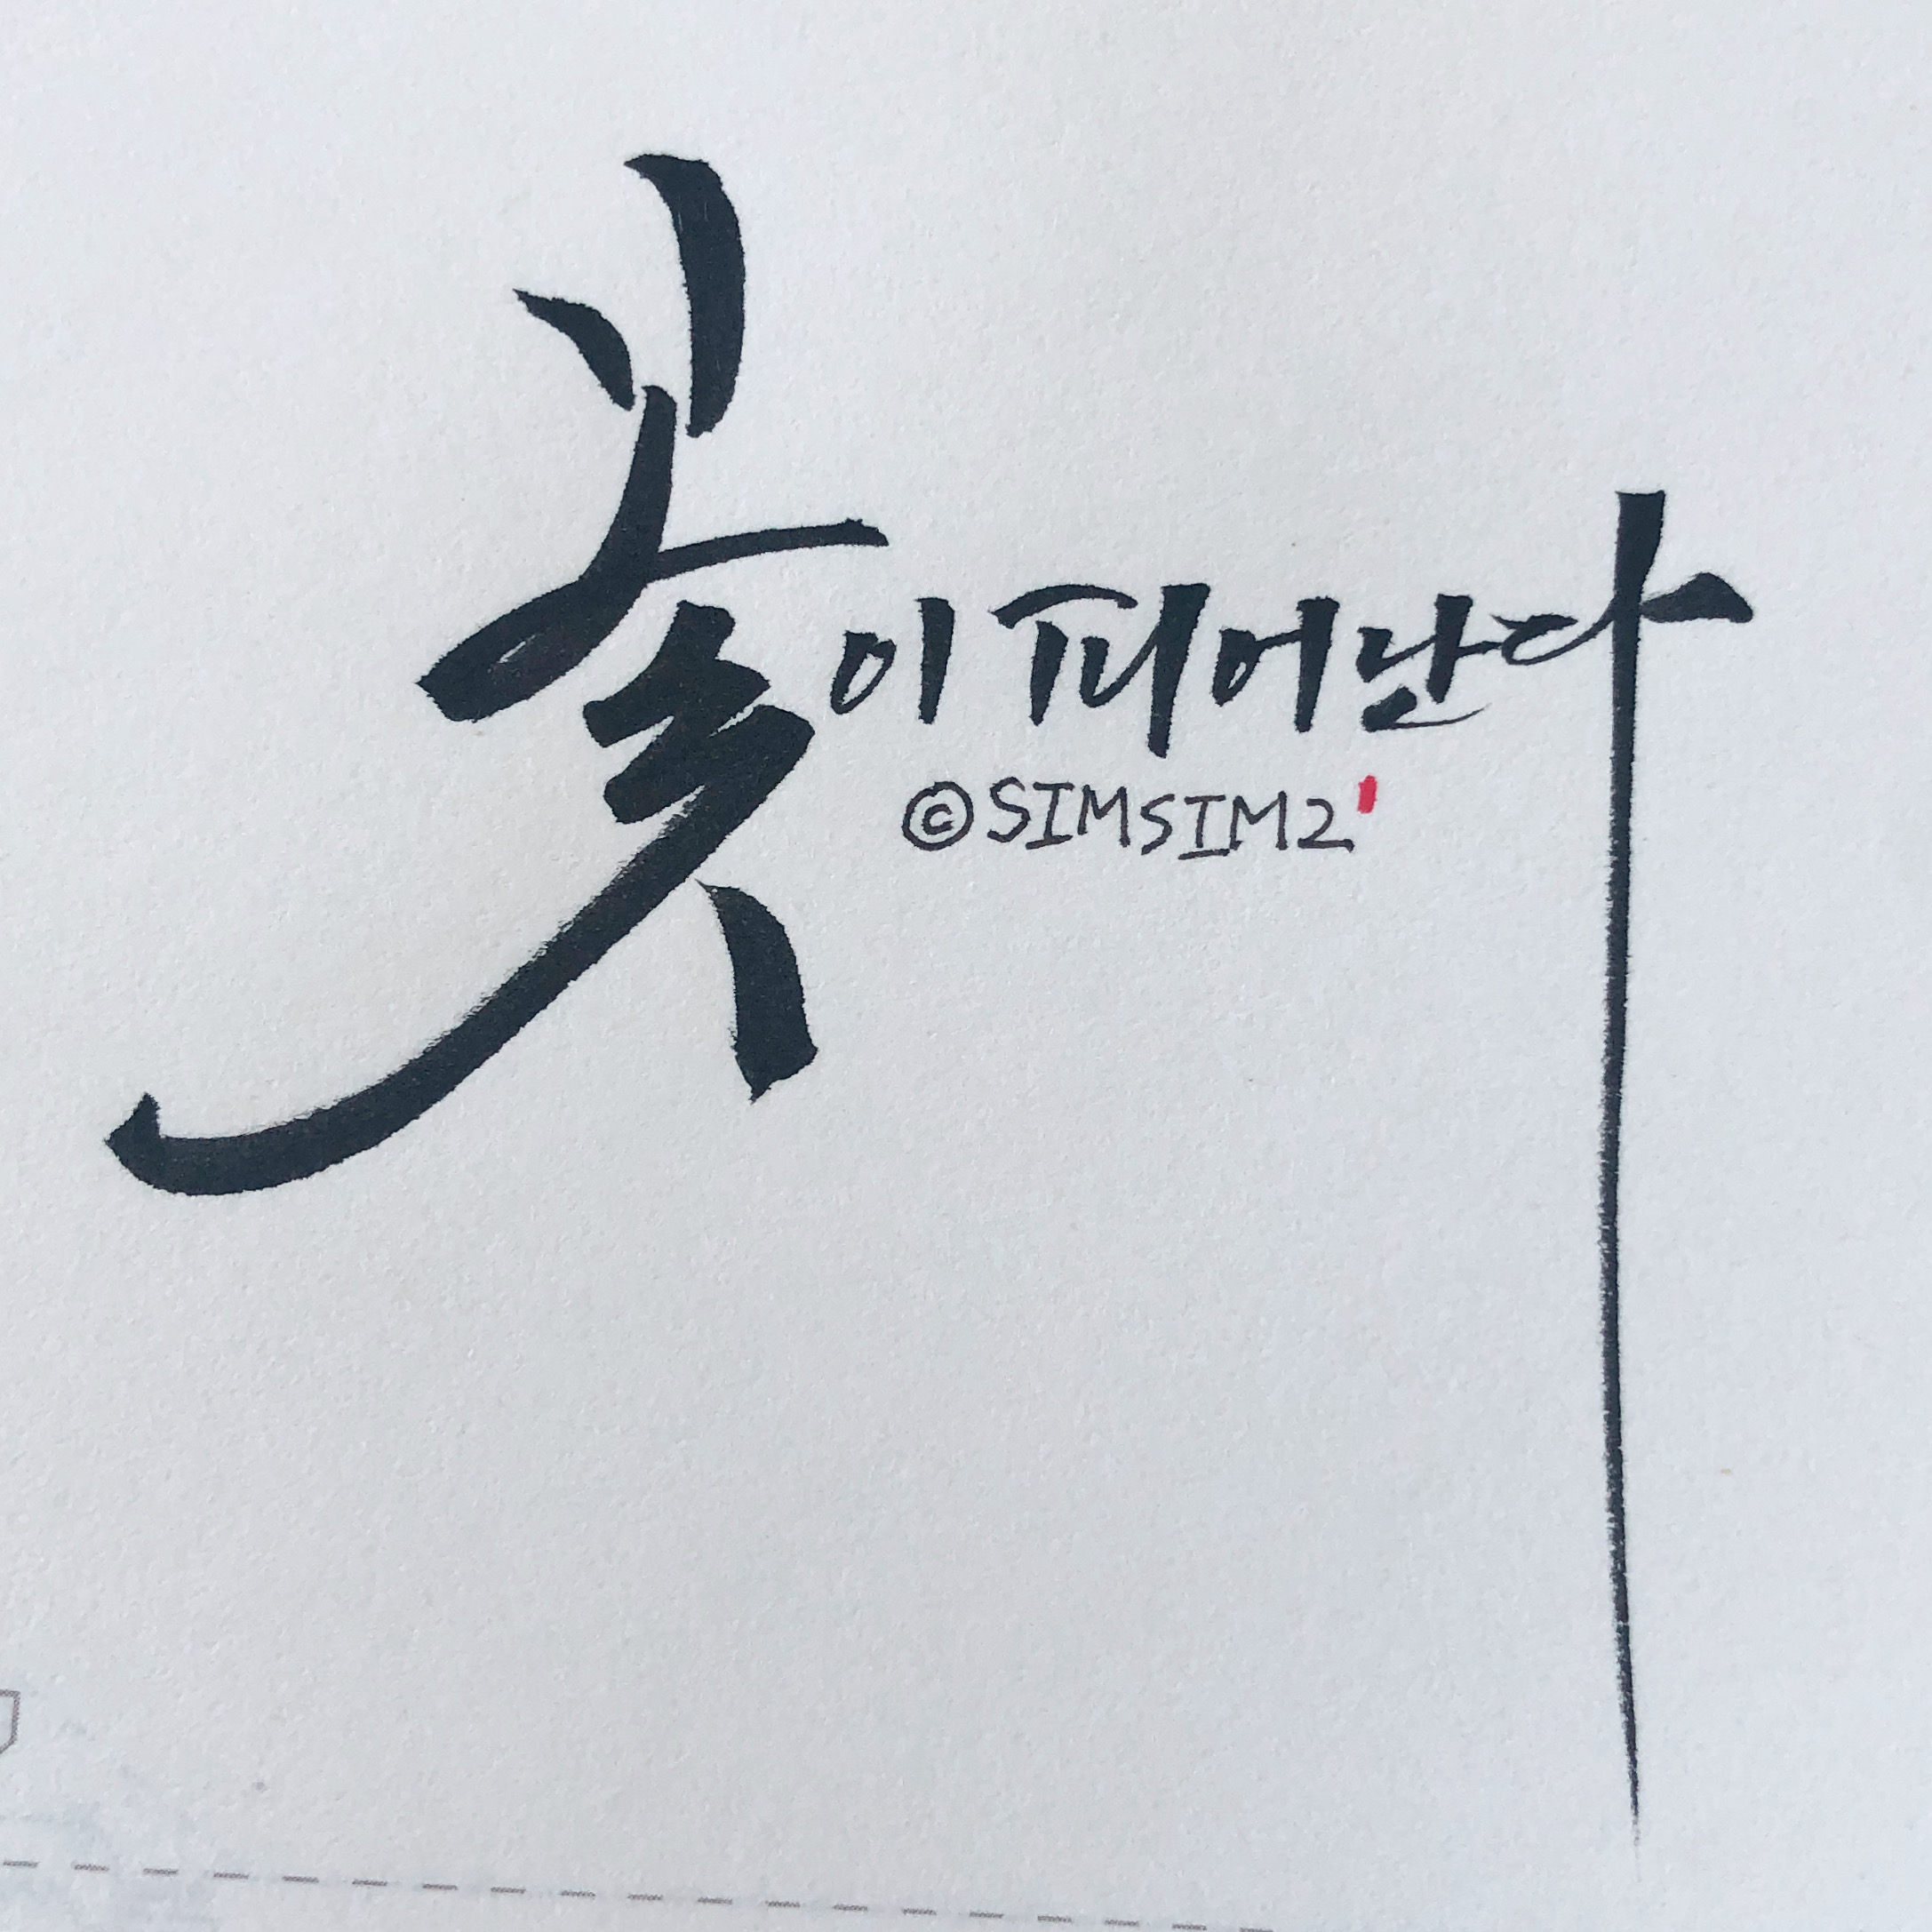 꽃이 피어난다
©SIMSIM2